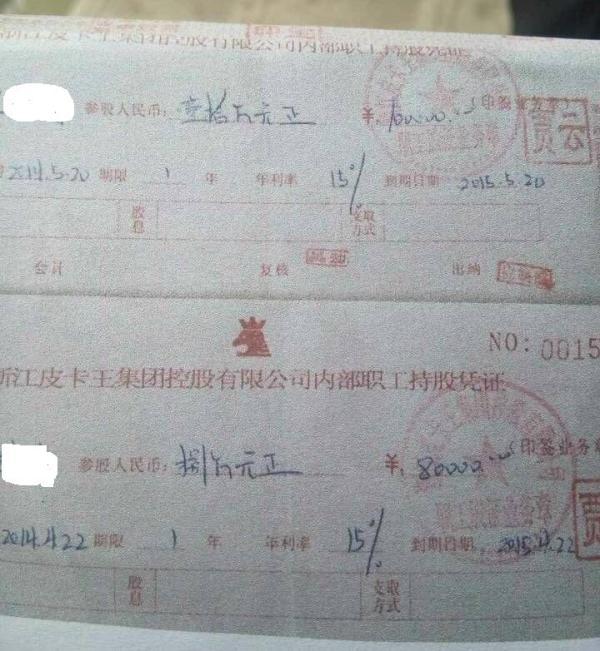 浙江皮卡王集团控股有限公司内部职工持股凭证
参股人民币：壹拾万元正 ¥:100000.00 (印签业务章)
贾云
2014.5.20 期限 1 年 年利率 15% 到期日期 2015.5.20
股息 支取方式
会计 复核 出纳
NO: 0015
浙江皮卡王集团控股有限公司内部职工持股凭证
参股人民币：捌万元正 ¥:80000.00 (印签业务章
贾
2014.4.22 期限 1 年 年利率 15% 到期日期 2015.4.22
股息 支取方式